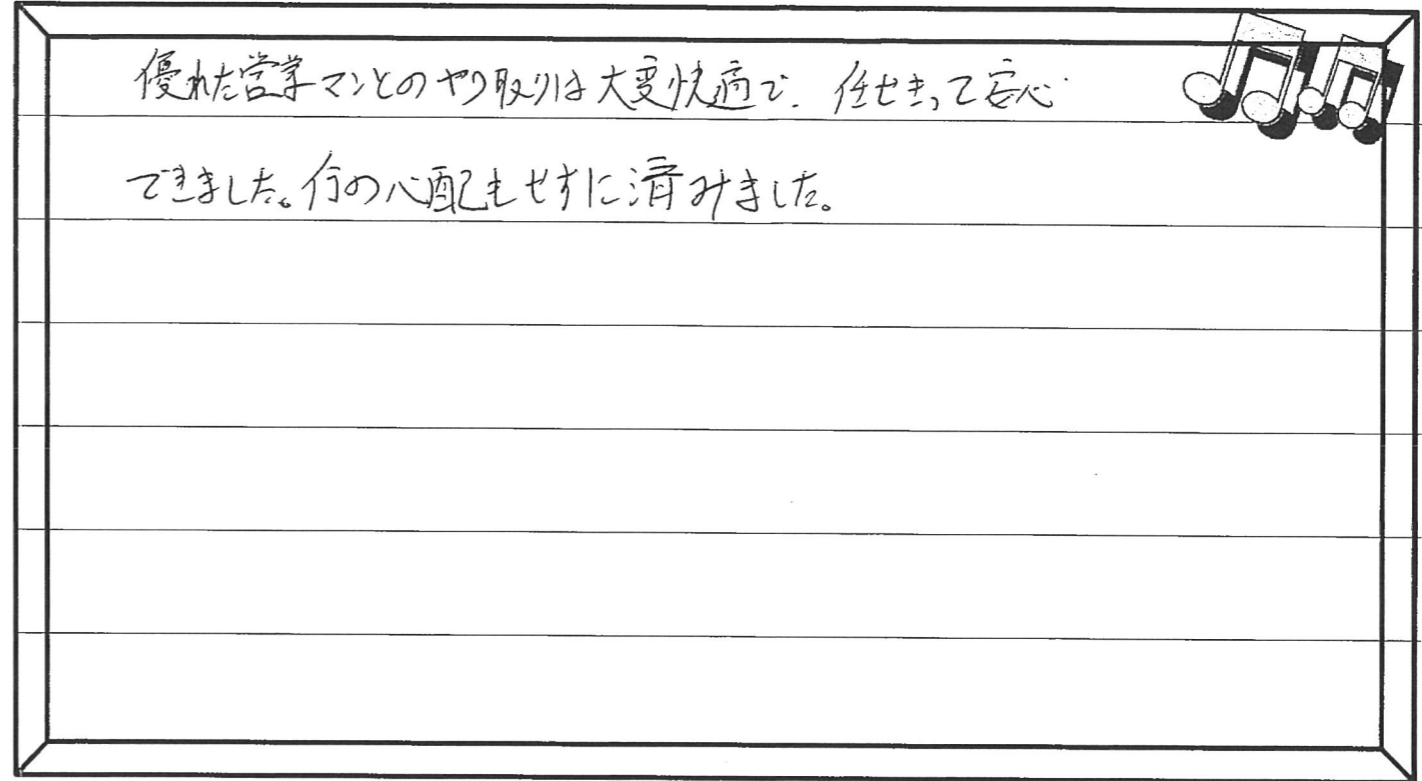 優れた営業マンとのやり取りは大変快適で、任せきって安心
できました。何の心配もせずに済みました。